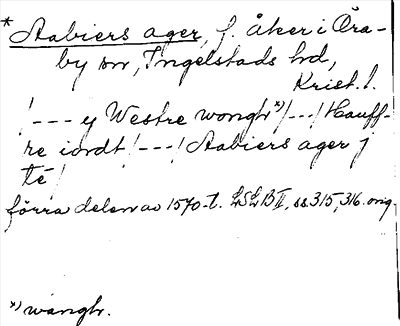 * Aabiers ager, f. åker i Öra-
by sn, Ingelstads hd,
Krist. l.
/---y Westre wonghr*)/---/Hauff-
re iordt/---/Aabiers ager j
té/
förra delen av 1570-t. LSLB II, ss. 315, 316. orig.
*) wangh.